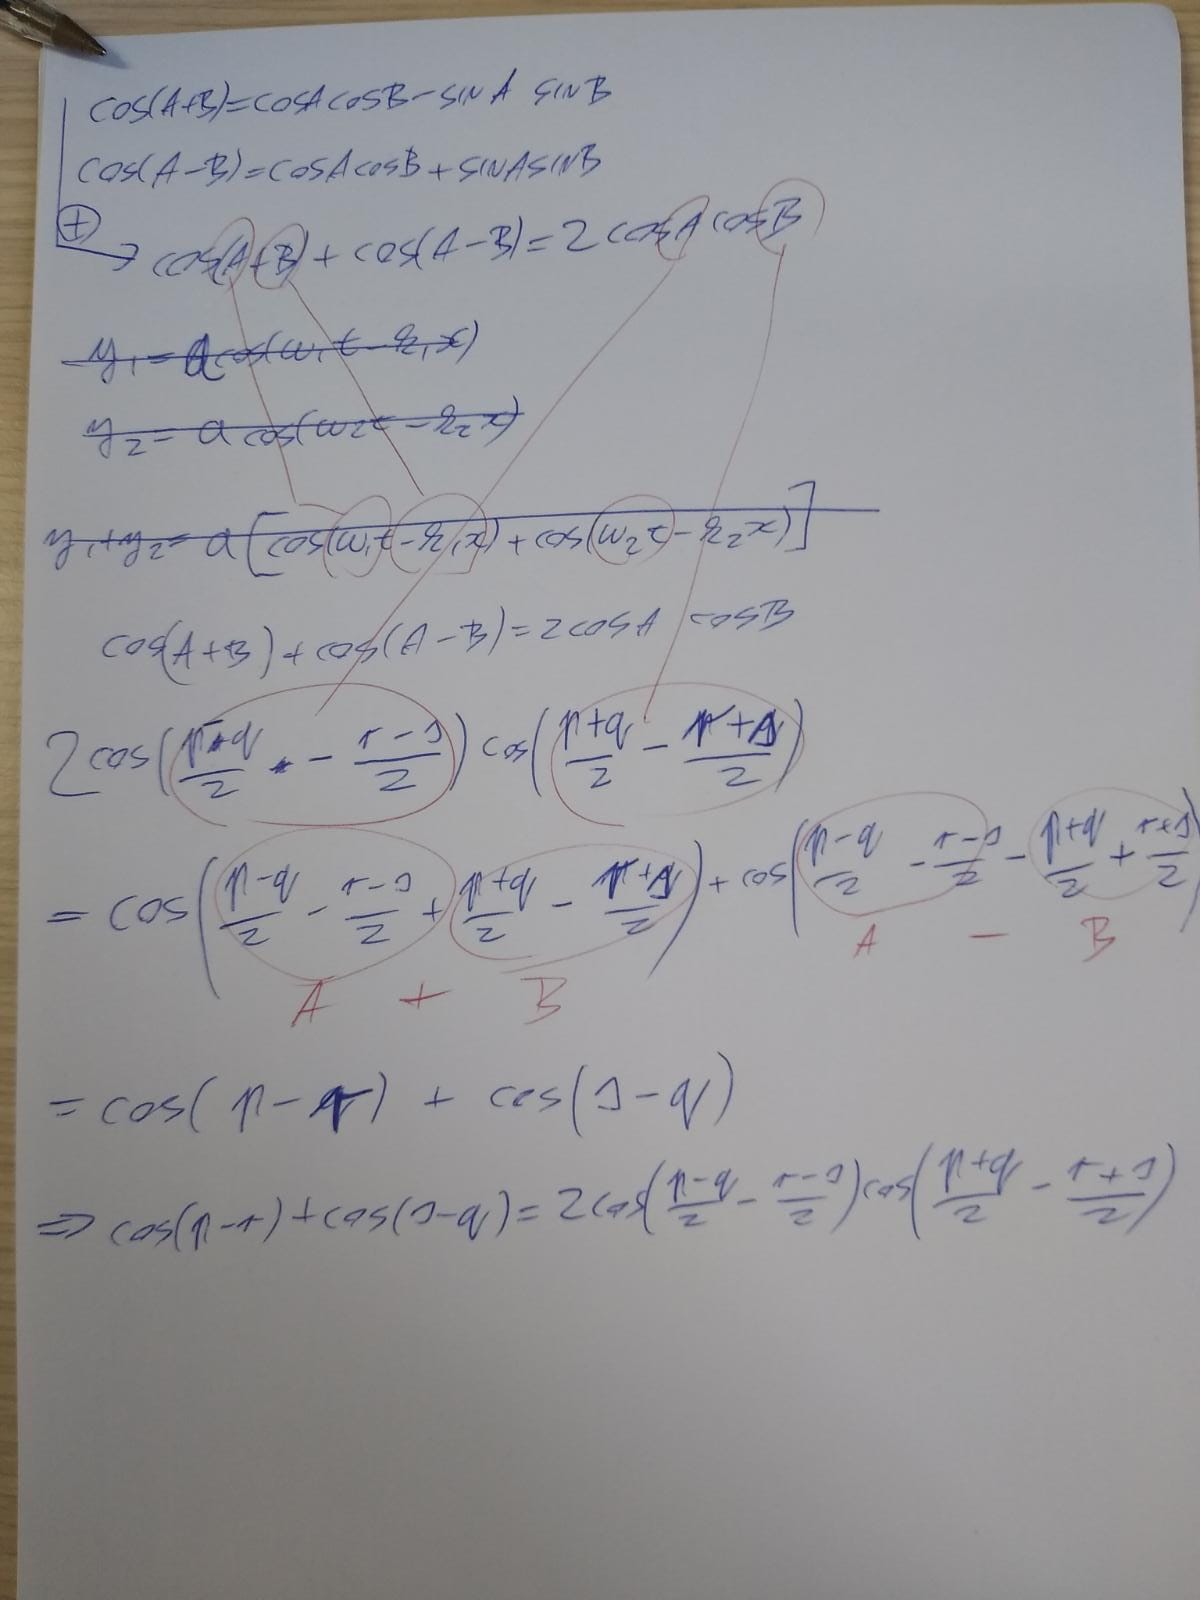 cos(A+B)=cosAcosB-sinA sinB
cos(A-B)=cosAcosB+sinAsinB
⊕ → cos(A+B)+cos(A-B)=2cosA cosB
y₁=a cos(ω₁t-k₁x)
y₂=a cos(ω₂t-k₂x)
y₁+y₂=a[cos(ω₁t-k₁x)+cos(ω₂t-k₂x)]
cos(A+B)+cos(A-B)=2cosA cosB
2cos((p-q)/2 - (r-s)/2) cos((p+q)/2 - (r+s)/2)
= cos((p-q)/2 - (r-s)/2 + (p+q)/2 - (r+s)/2) + cos((p-q)/2 - (r-s)/2 - (p+q)/2 + (r+s)/2)
A + B A - B
= cos(p-r) + cos(s-q)
⇒ cos(p-r)+cos(s-q)=2cos((p-q)/2 - (r-s)/2)cos((p+q)/2 - (r+s)/2)